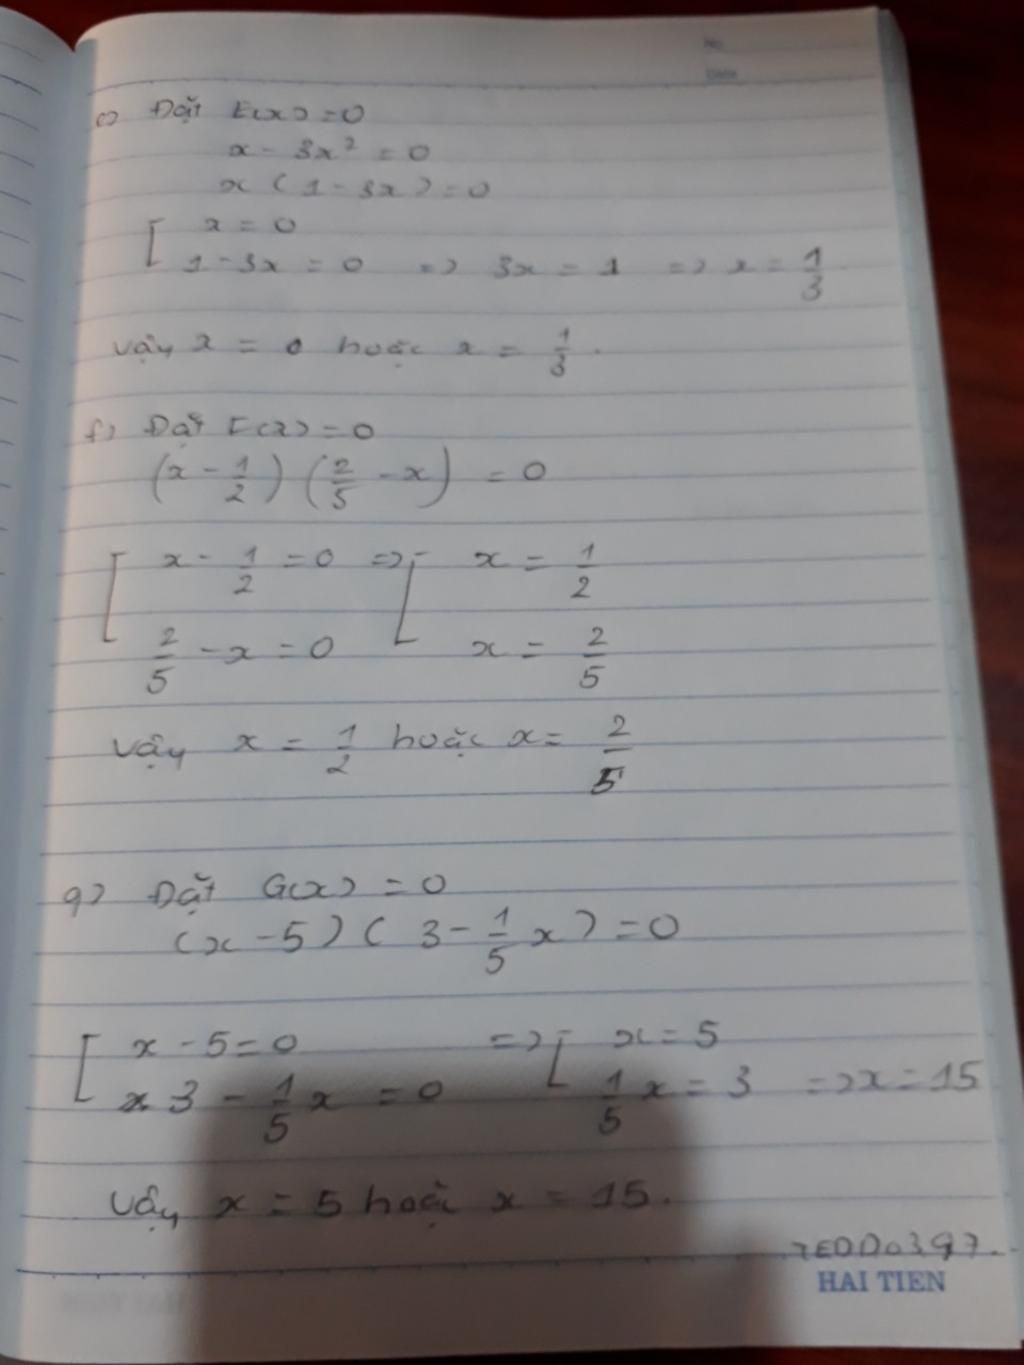 e) Đặt E(x) = 0
x - 3x² = 0
x (1 - 3x) = 0
[ x = 0
1 - 3x = 0 => 3x = 1 => x = 1/3
Vậy x = 0 hoặc x = 1/3.
f) Đặt F(x) = 0
(x - 1/2) (2/5 - x) = 0
[ x - 1/2 = 0 => [ x = 1/2
2/5 - x = 0 x = 2/5
Vậy x = 1/2 hoặc x = 2/5
g) Đặt G(x) = 0
(x - 5) (3 - 1/5 x) = 0
[ x - 5 = 0 => [ x = 5
3 - 1/5 x = 0 1/5 x = 3 => x = 15
Vậy x = 5 hoặc x = 15.
HAI TIEN